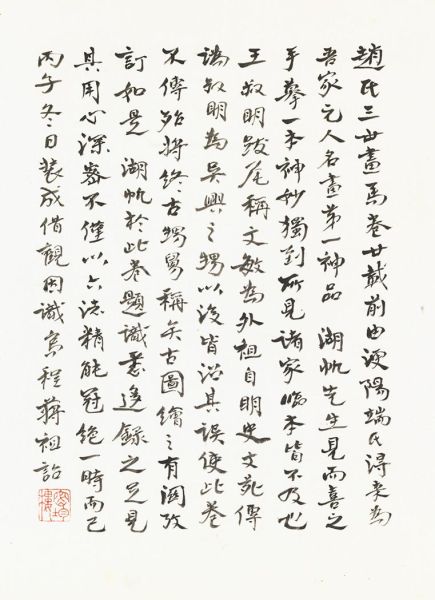 趙氏三世畫馬卷廿載前由浭陽端氏得來為
吾家元人名畫第一神品 湖帆先生見而喜之
手摹一本神妙獨到所見諸家臨本皆不及也
王叔明跋尾稱文敏為外祖自明史文苑傳
謂叔明為吳興之甥以後皆沿其誤使此卷
不傳殆將終古甥舅稱矣古圖繪之有關攷
訂如是 湖帆於此卷題識悉迻錄之足見
其用心深密不僅以六法精能冠絕一時而已
丙子冬日裝成借觀因識烏程蔣祖詒